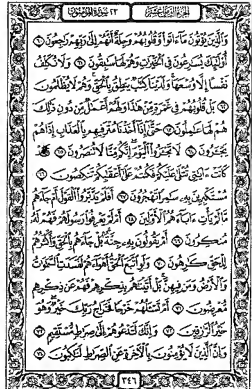 الجزء الثامن عشر ٢٣ سورة المؤمنون
وَالَّذِينَ يُؤْتُونَ مَا ءَاتَوا وَّقُلُوبُهُمْ وَجِلَةٌ أَنَّهُمْ إِلَىٰ رَبِّهِمْ رَٰجِعُونَ ٦٠
أُو۟لَٰٓئِكَ يُسَٰرِعُونَ فِي الْخَيْرَٰتِ وَهُمْ لَهَا سَٰبِقُونَ ٦١ وَلَا نُكَلِّفُ
نَفْسًا إِلَّا وُسْعَهَا وَلَدَيْنَا كِتَٰبٌ يَنطِقُ بِالْحَقِّ وَهُمْ لَا يُظْلَمُونَ ٦٢
بَلْ قُلُوبُهُمْ فِي غَمْرَةٍ مِّنْ هَٰذَا وَلَهُمْ أَعْمَٰلٌ مِّن دُونِ ذَٰلِكَ
هُمْ لَهَا عَٰمِلُونَ ٦٣ حَتَّىٰ إِذَا أَخَذْنَا مُتْرَفِيهِم بِالْعَذَابِ إِذَا هُمْ
يَجْـَٔرُونَ ٦٤ لَا تَجْـَٔرُوا الْيَوْمَ إِنَّكُم مِّنَّا لَا تُنصَرُونَ ٦٥ قَدْ
كَانَتْ ءَايَٰتِي تُتْلَىٰ عَلَيْكُمْ فَكُنتُمْ عَلَىٰ أَعْقَٰبِكُمْ تَنكِصُونَ ٦٦
مُسْتَكْبِرِينَ بِهِ سَٰمِرًا تَهْجُرُونَ ٦٧ أَفَلَمْ يَدَّبَّرُوا الْقَوْلَ أَمْ جَاءَهُم
مَّا لَمْ يَأْتِ ءَابَاءَهُمُ الْأَوَّلِينَ ٦٨ أَمْ لَمْ يَعْرِفُوا رَسُولَهُمْ فَهُمْ لَهُ
مُنكِرُونَ ٦٩ أَمْ يَقُولُونَ بِهِ جِنَّةٌ بَلْ جَاءَهُم بِالْحَقِّ وَأَكْثَرُهُمْ
لِلْحَقِّ كَٰرِهُونَ ٧٠ وَلَوِ اتَّبَعَ الْحَقُّ أَهْوَاءَهُمْ لَفَسَدَتِ السَّمَٰوَٰتُ
وَالْأَرْضُ وَمَن فِيهِنَّ بَلْ أَتَيْنَٰهُم بِذِكْرِهِمْ فَهُمْ عَن ذِكْرِهِم
مُّعْرِضُونَ ٧١ أَمْ تَسْـَٔلُهُمْ خَرْجًا فَخَرَاجُ رَبِّكَ خَيْرٌ وَهُوَ
خَيْرُ الرَّٰزِقِينَ ٧٢ وَإِنَّكَ لَتَدْعُوهُمْ إِلَىٰ صِرَٰطٍ مُّسْتَقِيمٍ ٧٣
وَإِنَّ الَّذِينَ لَا يُؤْمِنُونَ بِالْءَاخِرَةِ عَنِ الصِّرَٰطِ لَنَٰكِبُونَ ٧٤
٣٤٦